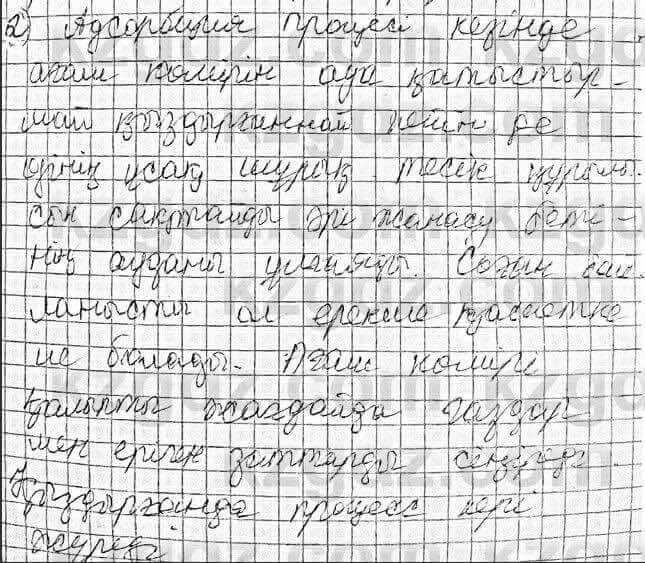 2) Адсорбция процесі кезінде
ағаш көмірін ауа қатыстыр-
май қыздырғаннан кейін де
өзінің ұсақ шұрық тесік құрылы-
сын сақтайды әрі жанасу беті-
нің ауданы ұлғаяды. Соған бай-
ланысты ол ерекше қасиетке
ие болады. Ағаш көмірі
қалыпты жағдайда газдар
мен еріген заттарды сіңіреді.
Қыздырғанда процесс кері
жүреді